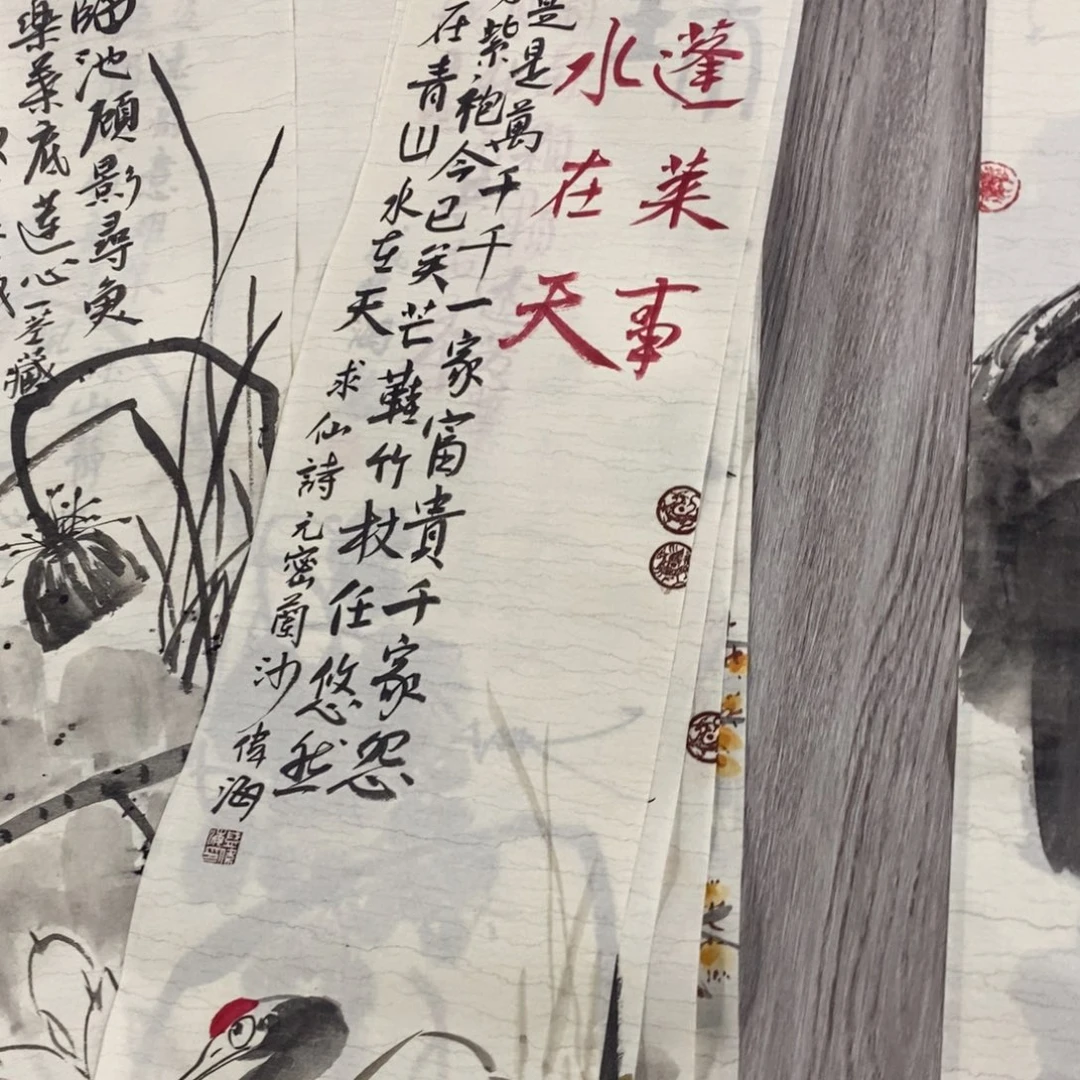 蓬莱事
水在天
是是萬千千一家富貴千家怨
紫袍今已矣芒鞋竹杖任悠然
在青山水在天
求仙詩元密蘭沙偉海
臨池顧影尋魚
樂葉底蓮心一茎藏